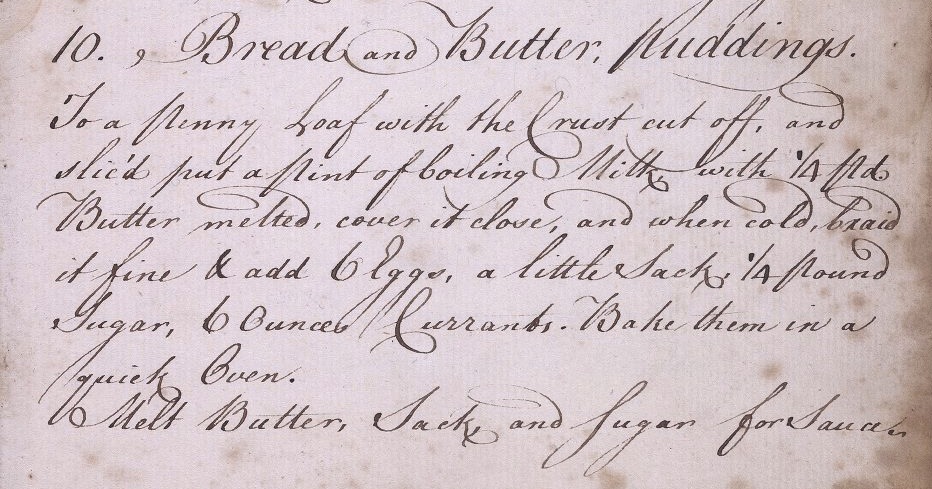 10. , Bread and Butter, Puddings.
To a penny Loaf with the Crust cut off, and
slic'd put a pint of boiling Milk, with 1/4 pd
Butter melted, cover it close, and when cold, braid
it fine & add 6 Eggs, a little Sack, 1/4 pound
Sugar, 6 Ounces Currants. Bake them in a
quick Oven.
Melt Butter, Sack, and Sugar for Sauce